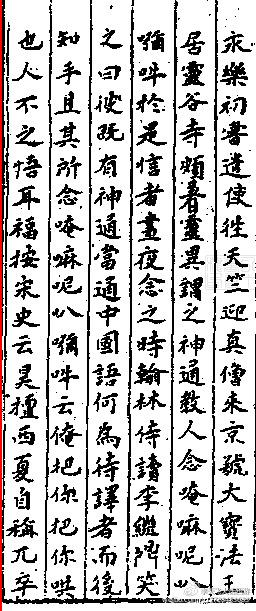 永樂初嘗遣使徃天竺迎真僧来京號大寶法王
居靈谷寺頗著靈異謂之神通教人念唵嘛呢叭
𡃤吽於是信者晝夜念之時翰林侍讀李繼鼎笑
之曰彼既有神通當通中國語何為待譯者而後
知乎且其所念唵嘛呢叭𡃤吽云俺把你把你哄
也人不之悟耳福按宋史云昊種西夏自稱兀卒